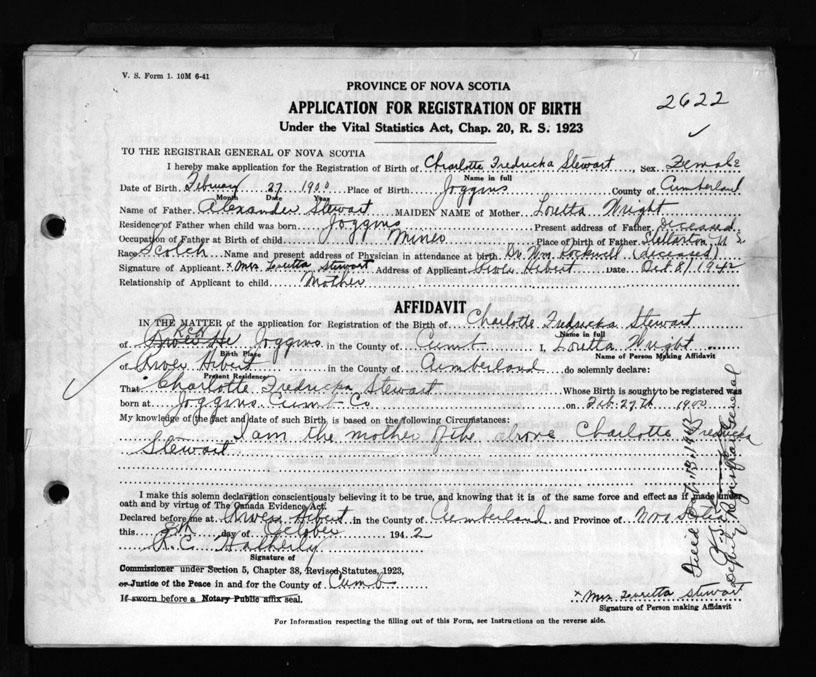 V. S. Form 1. 10M 6-41
PROVINCE OF NOVA SCOTIA
APPLICATION FOR REGISTRATION OF BIRTH
2622
Under the Vital Statistics Act, Chap. 20, R. S. 1923
TO THE REGISTRAR GENERAL OF NOVA SCOTIA
I hereby make application for Registration of Birth of Charlotte Fredricka Stewart, Sex Female
Name in full
Date of Birth February 27 1900 Place of Birth Joggins County of Cumberland
Month Date Year
Name of Father Alexander Stewart MAIDEN NAME of Mother Loretta Wright
Residence of Father when child was born Joggins Present address of Father Deceased
Occupation of Father at Birth of child Mines Place of birth of Father Stellarton N S
Race Scotch Name and present address of Physician in attendance at birth Dr Wm Rockwell (deceased)
Signature of Applicant x Mrs Loretta Stewart Address of Applicant River Hebert Date Oct 8/1942
Relationship of Applicant to child Mother
AFFIDAVIT
IN THE MATTER of the application for Registration of the Birth of Charlotte Fredricka Stewart
Name in full
of Joggins in the County of Cumb I, Loretta Wright
Birth Place Name of Person Making Affidavit
of River Hebert in the County of Cumberland do solemnly declare:
Present Residence
That Charlotte Fredricka Stewart Whose Birth is sought to be registered was
born at Joggins Cumb Co on Feb 27th 1900
My knowledge of (the fact and) date of such Birth is based on the following Circumstances:
I am the mother of the above Charlotte Fredricka
Stewart
I make this solemn declaration conscientiously believing it to be true, and knowing that it is of the same force and effect as if made under
oath and by virtue of The Canada Evidence Act.
Declared before me at River Hebert in the County of Cumberland and Province of Nova Scotia
this 8th day of October 1942
Signature of
Commissioner under Section 5, Chapter 38, Revised Statutes, 1923,
or Justice of the Peace in and for the County of Cumb
If sworn before a Notary Public affix seal.
x Mrs Loretta Stewart
Signature of Person making Affidavit
For Information respecting the filling out of this Form, see Instructions on the reverse side.
Deputy Registrar General